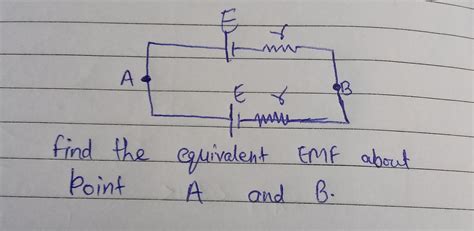 E
r
A
B
E r
find the equivalent EMF about
Point A and B.